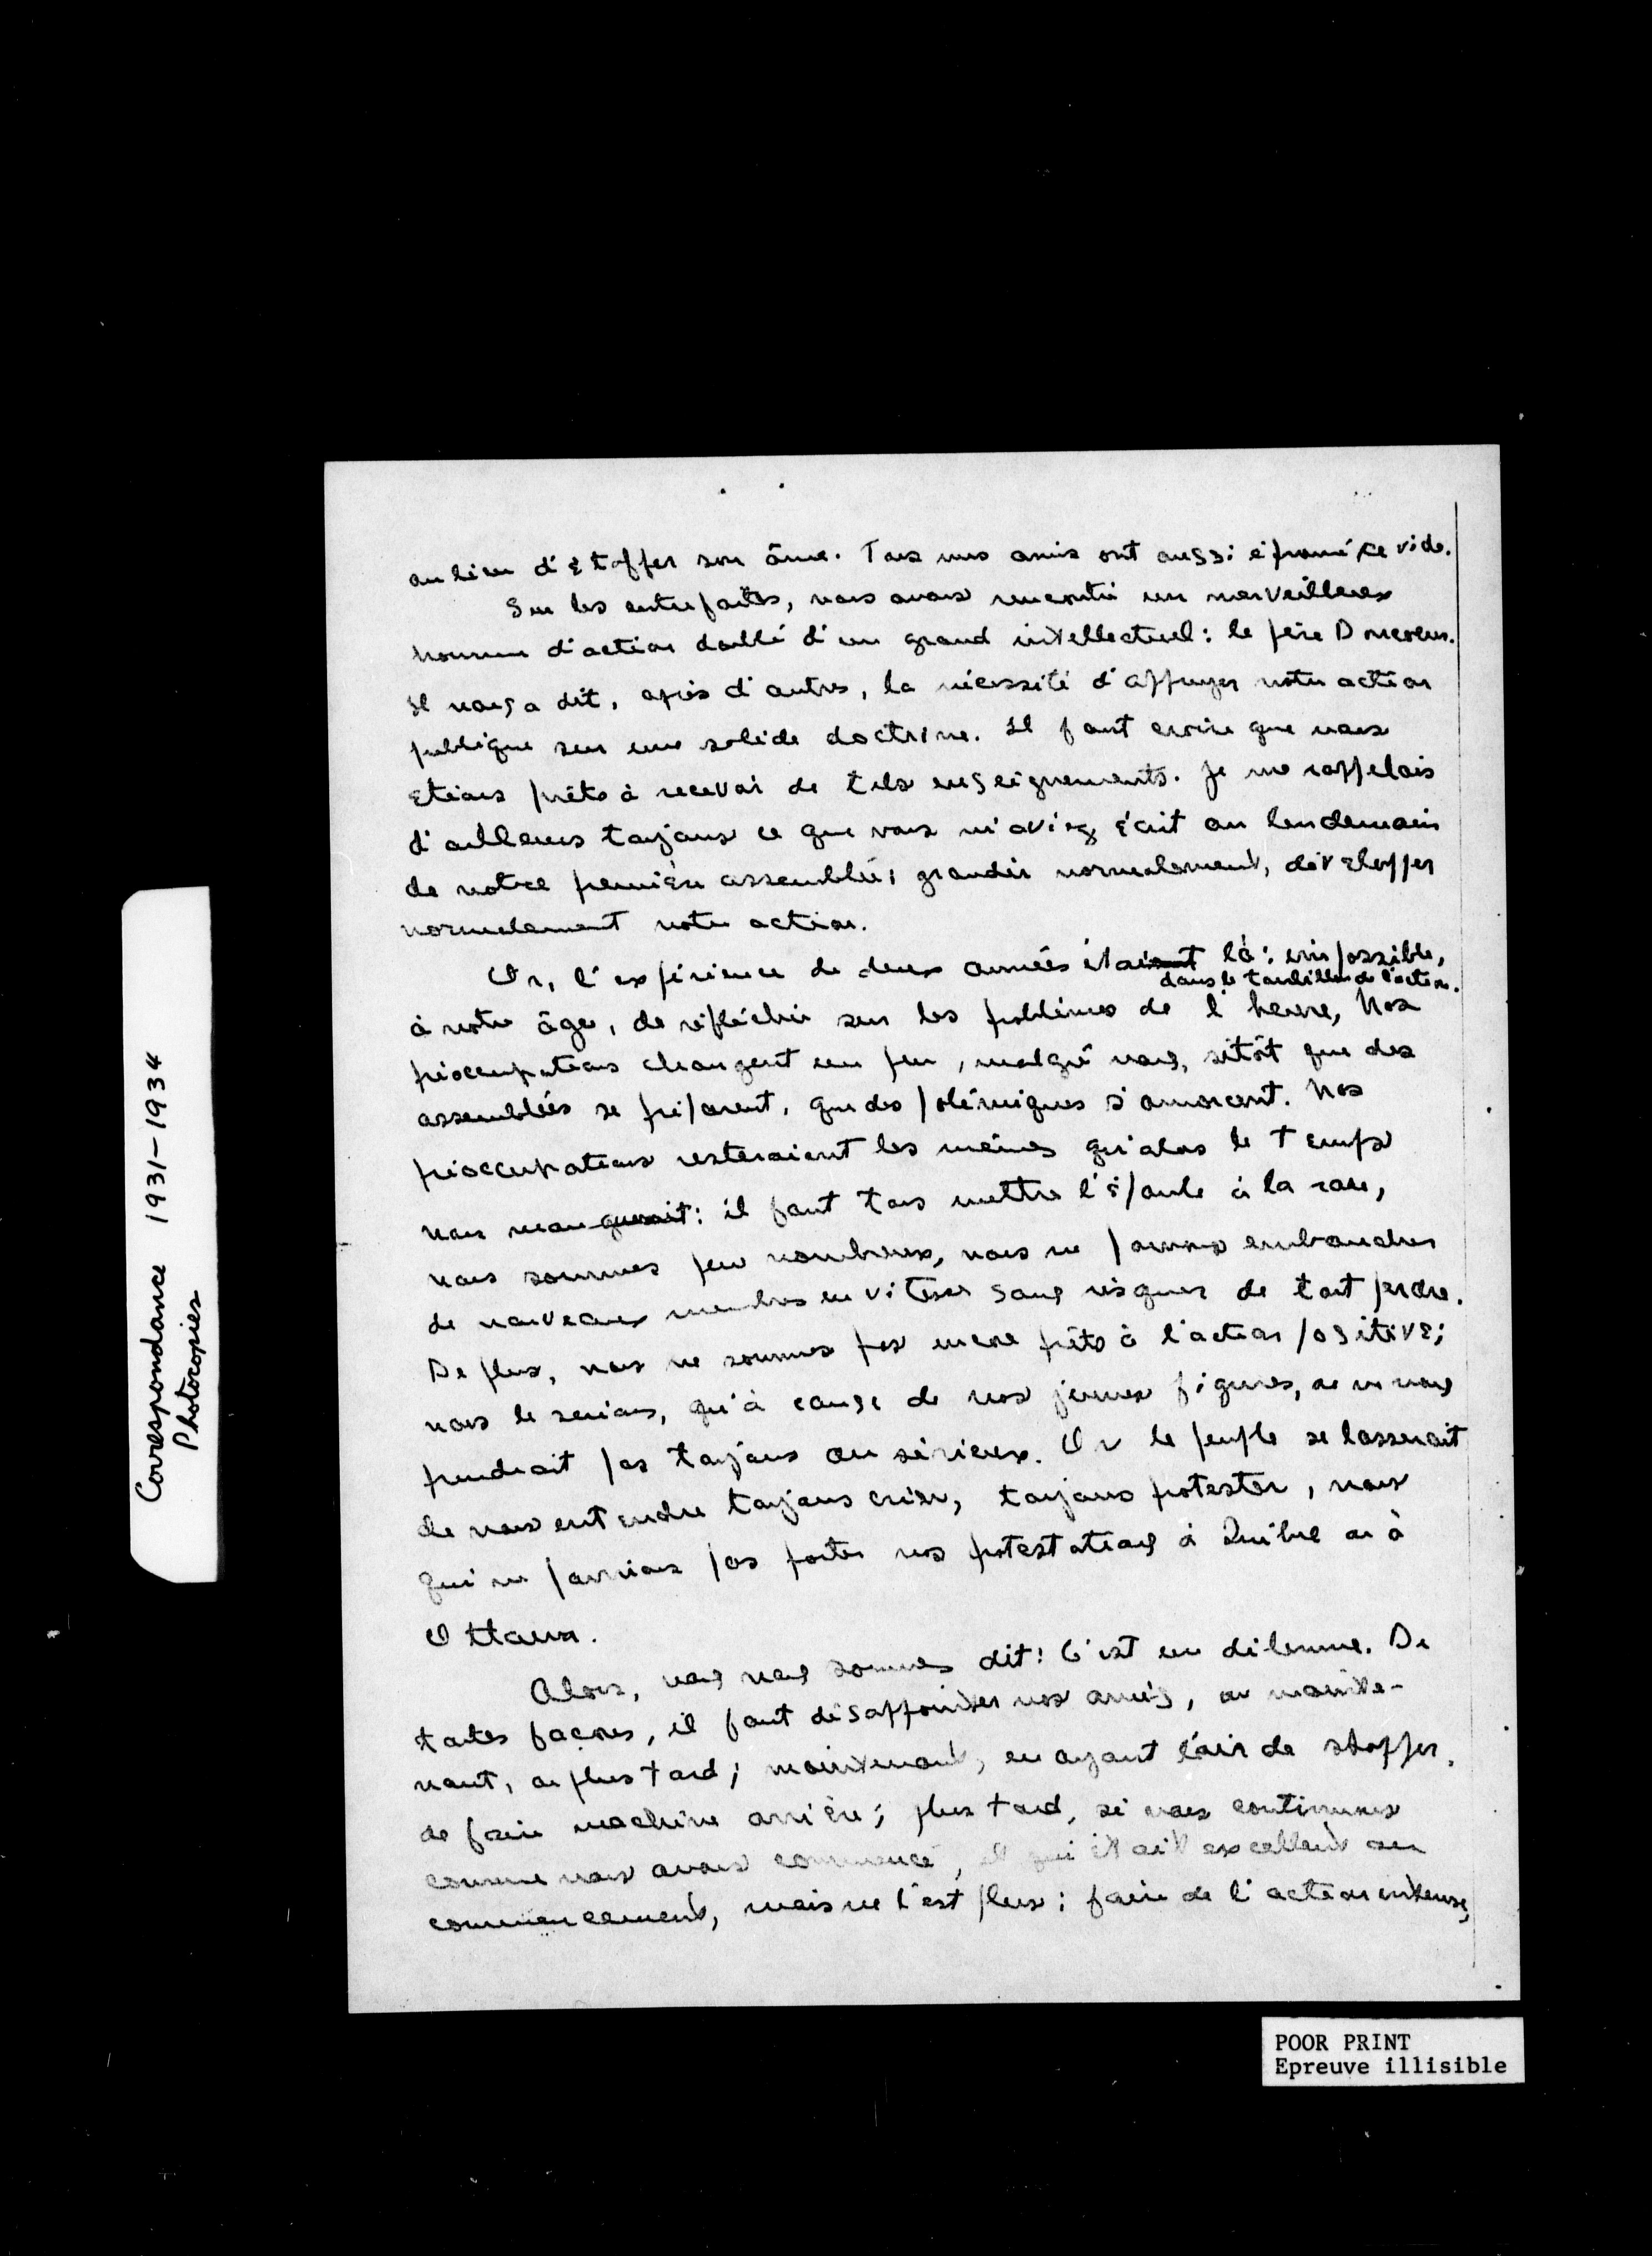 Correspondance 1931-1934
Photocopies
au lieu d'étoffer son âme. Tous mes amis ont aussi éprouvé ce vide.
Sur les entrefaites, nous avons rencontré un merveilleux
homme d'action doublé d'un grand intellectuel: le père
Il nous a dit, après d'autres, la nécessité d'appuyer notre action
publique sur une solide doctrine. Il faut croire que nous
étions prêts à recevoir de tels enseignements. Je me rappelais
d'ailleurs toujours ce que vous m'aviez écrit au lendemain
de notre première assemblée: grandir normalement, développer
normalement notre action.
Or, l'expérience de deux années était là: impossible,
dans le tourbillon de l'action.
à notre âge, de réfléchir sur les problèmes de l'heure, Nos
préoccupations changent un peu, malgré nous, sitôt que des
assemblées se préparent, que des polémiques s'amorcent. Nos
préoccupations resteraient les mêmes qu'alors le temps
nous manquerait: il faut tous mettre l'épaule à la roue,
nous sommes peu nombreux, nous ne pouvons embaucher
de nouveaux membres en vitesse sans risquer de tout perdre.
De plus, nous ne sommes pas encore prêts à l'action positive;
nous le serions, qu'à cause de nos jeunes figures, on ne nous
prendrait pas toujours au sérieux. Or le peuple se lasserait
de nous entendre toujours crier, toujours protester, nous
qui ne pouvions pas porter nos protestations à Québec ou à
Ottawa.
Alors, nous nous sommes dit: C'est un dilemme. De
toutes façons, il faut désappointer nos amis, ou mainte-
nant, ou plus tard; maintenant, en ayant l'air de stopper,
de faire machine arrière; plus tard, si nous continuons
comme nous avons commencé, ce qui était excellent au
commencement, mais ne l'est plus: faire de l'action intense,
POOR PRINT
Epreuve illisible